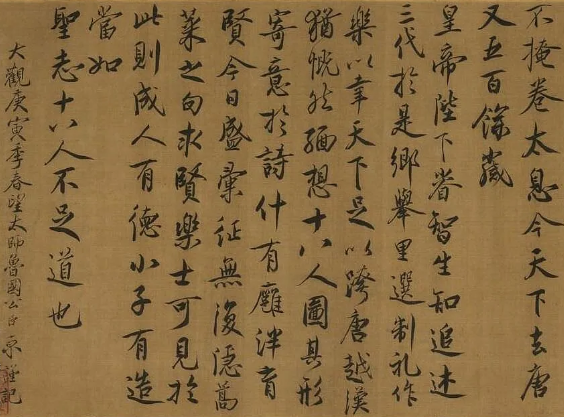 不掩卷太息今天下去唐
又五百餘歲
皇帝陛下睿智生知追述
三代於是鄉舉里選制礼作
樂以幸天下足以跨唐越漢
猶慨然緬想十八人圖其形
寄意於詩什有廱泮育
賢今日盛彙征無復隱蒿
萊之句求賢樂士可見於
此則成人有德小子有造
當如
聖志十八人不足道也
大觀庚寅季春望太師魯國公臣京謹記